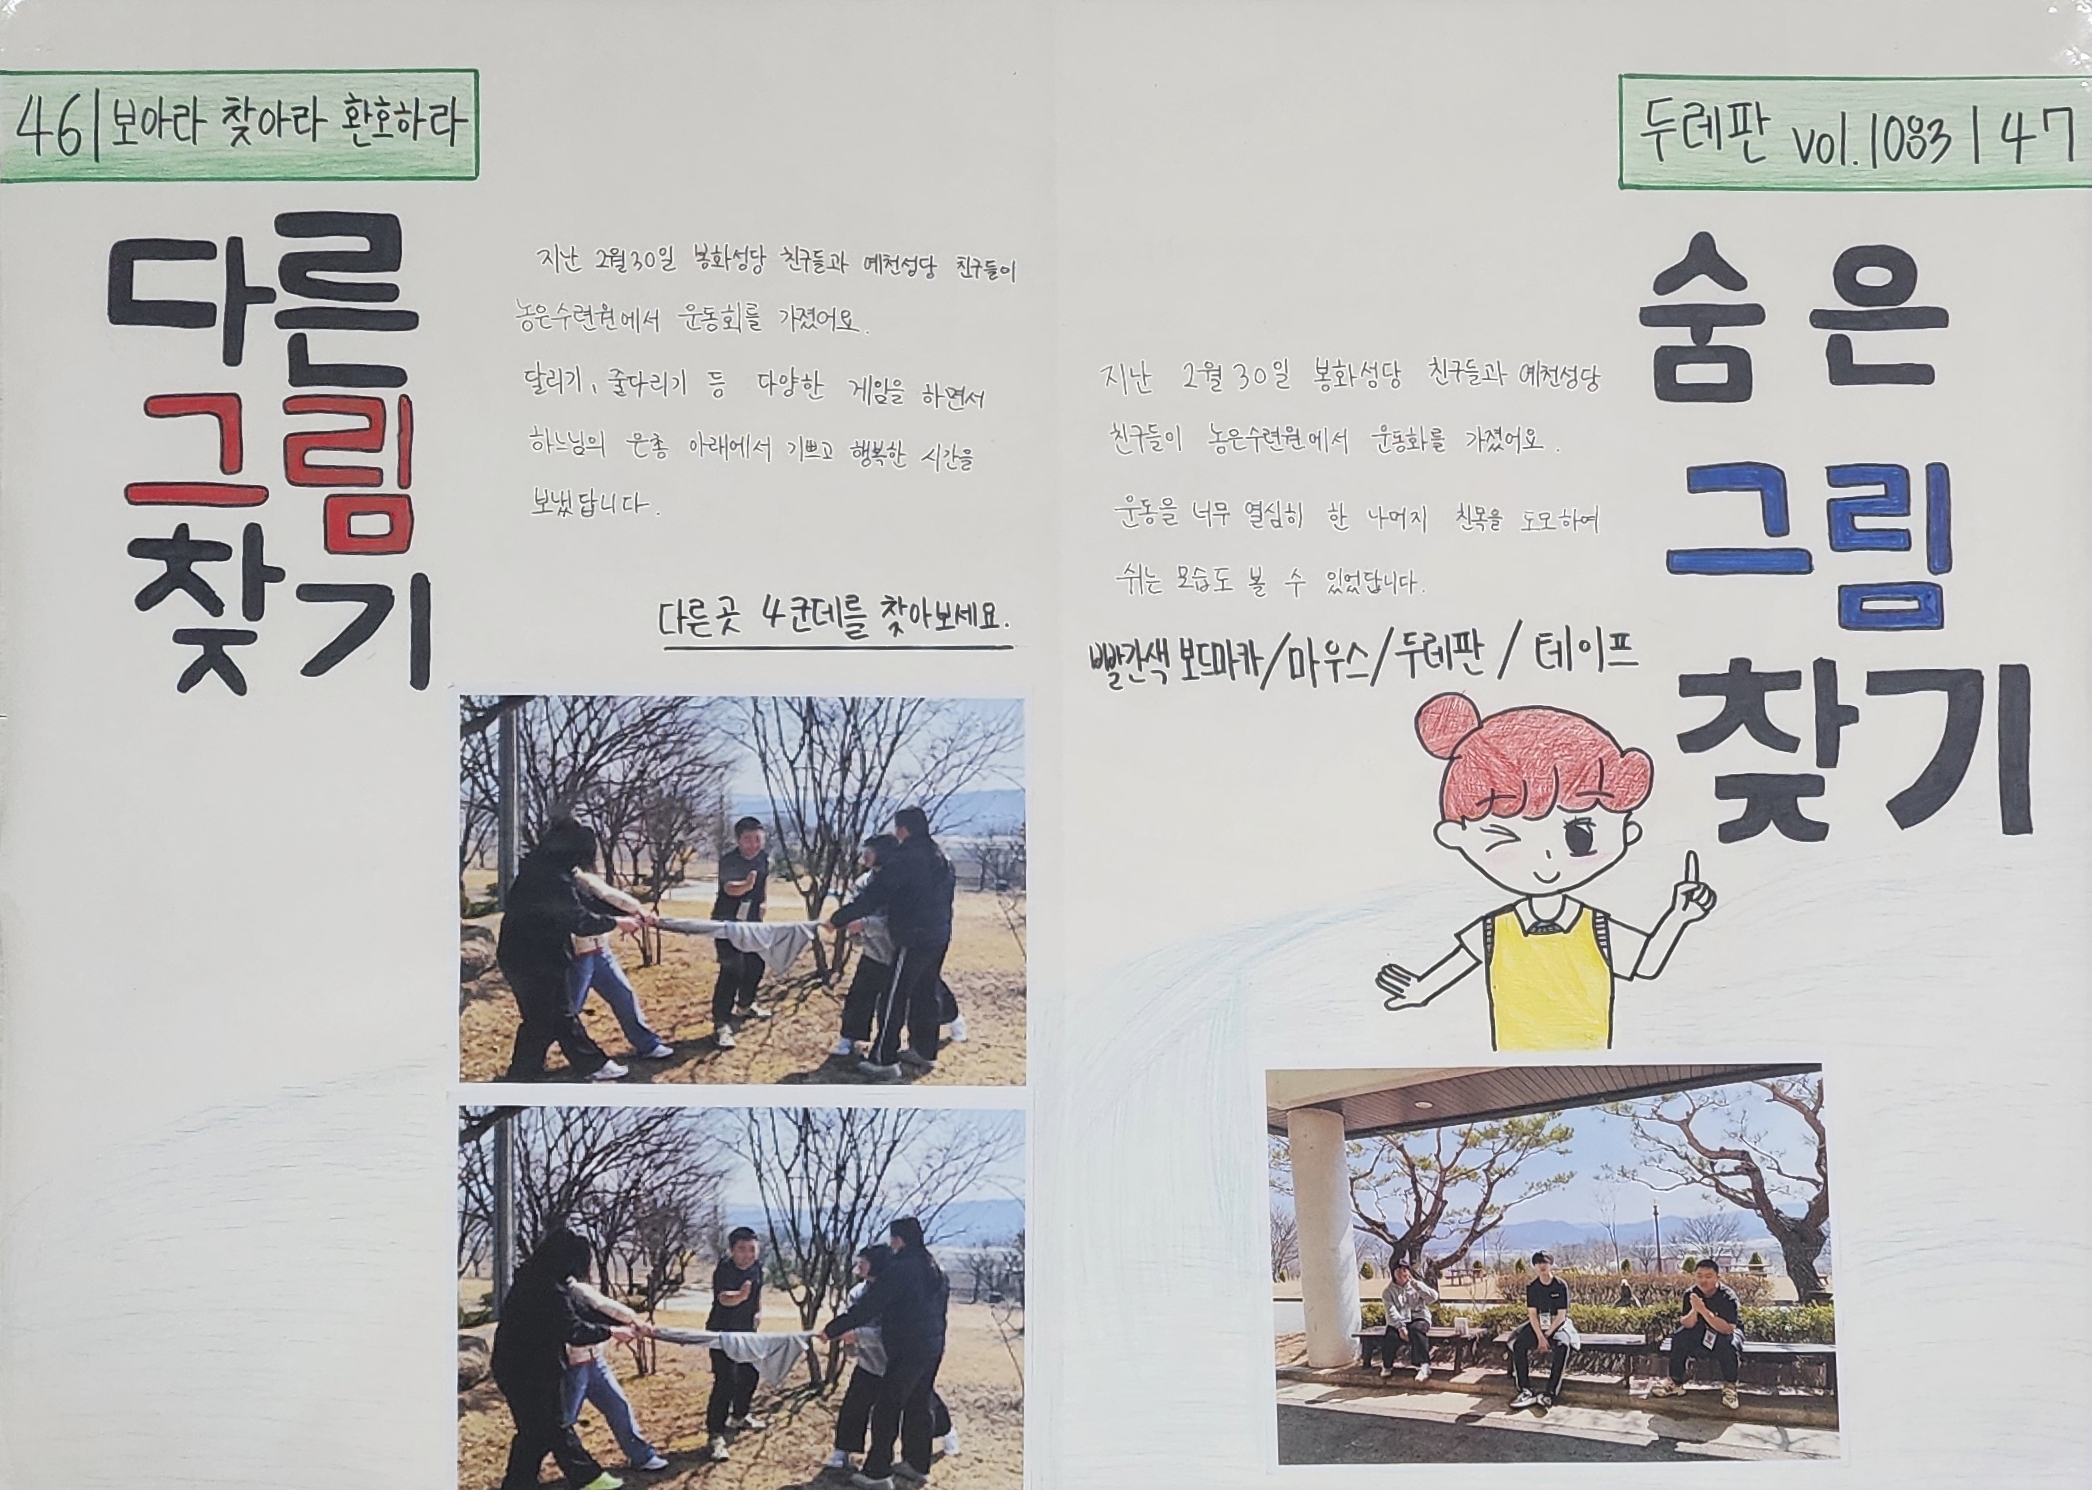 46 | 보아라 찾아라 환호하라
다른
그림
찾기
지난 2월30일 봉화성당 친구들과 예천성당 친구들이
농은수련원에서 운동회를 가졌어요.
달리기, 줄다리기 등 다양한 게임을 하면서
하느님의 은총 아래에서 기쁘고 행복한 시간을
보냈답니다.
다른곳 4군데를 찾아보세요.
두레판 vol.1083 | 47
숨은
그림
찾기
지난 2월30일 봉화성당 친구들과 예천성당
친구들이 농은수련원에서 운동화를 가졌어요.
운동을 너무 열심히 한 나머지 친목을 도모하여
쉬는 모습도 볼 수 있었답니다.
빨간색 보드마카/마우스/두레판/테이프